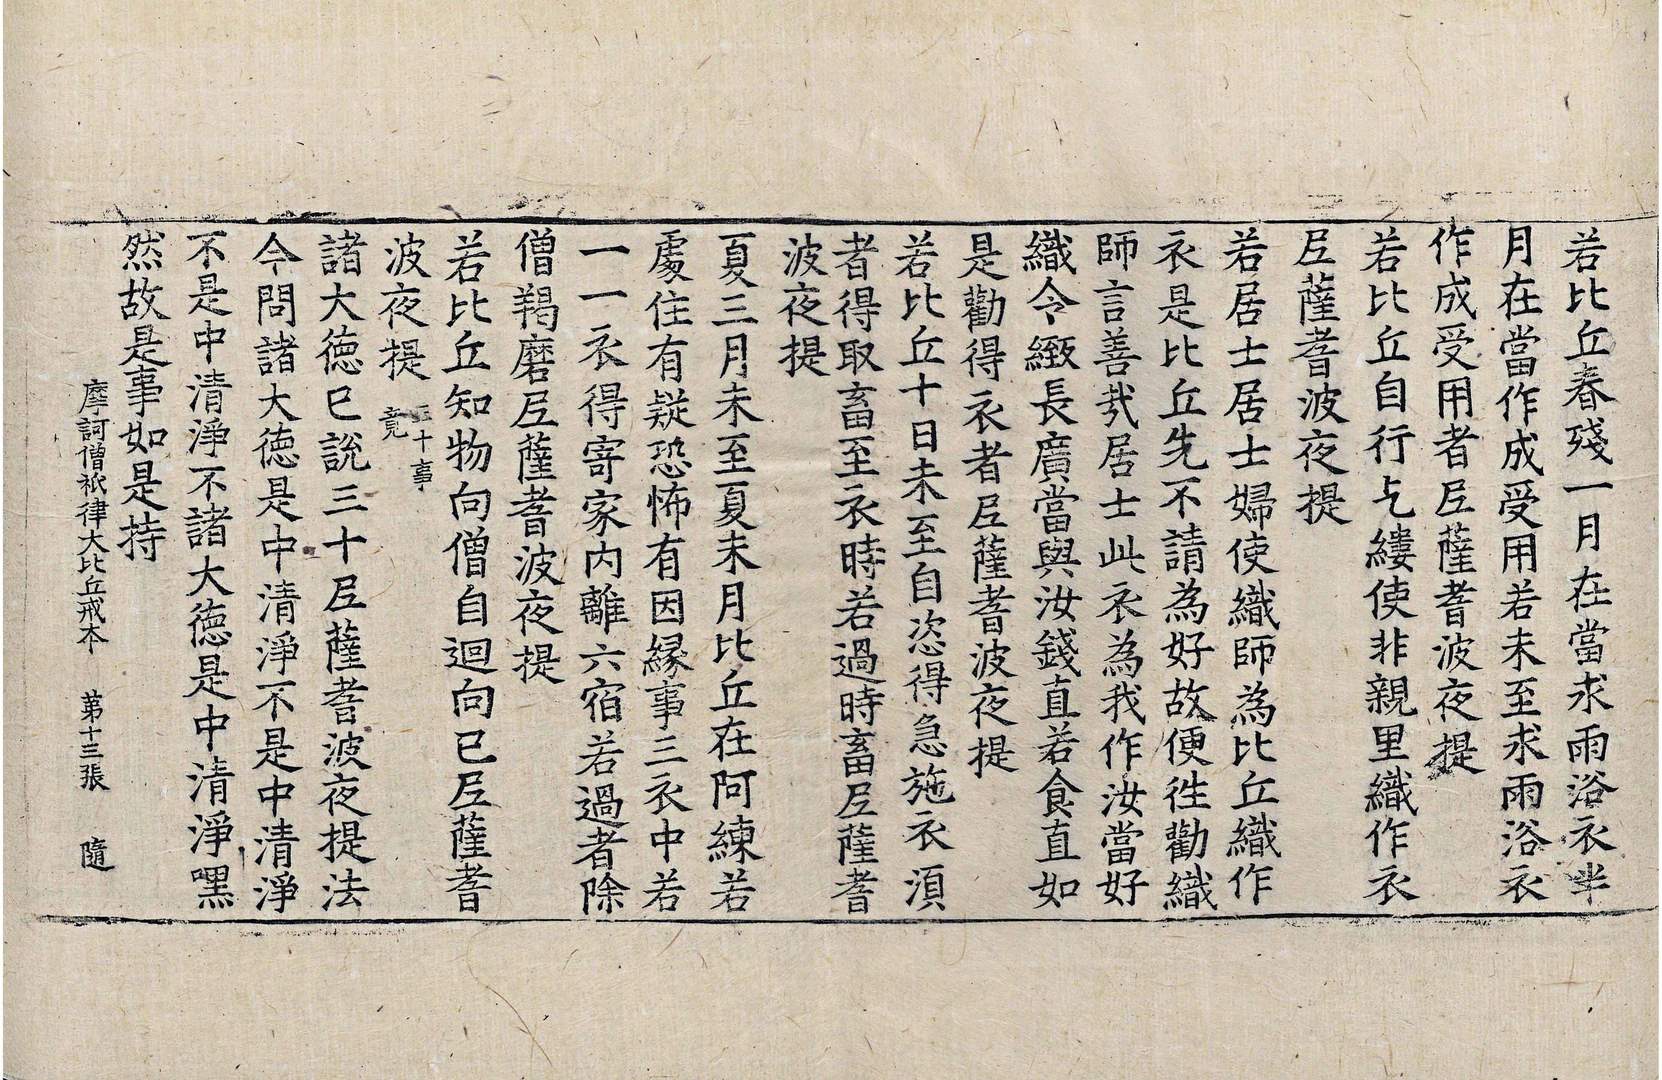 若比丘春殘一月在當求雨浴衣半
月在當作成受用若未至求雨浴衣
作成受用者𡰱薩耆波夜提
若比丘自行乞縷使非親里織作衣
𡰱薩耆波夜提
若居士居士婦使織師為比丘織作
衣是比丘先不請為好故便徃勸織
師言善㢤居士此衣為我作汝當好
織令緻長廣當與汝錢直若食直如
是勸得衣者𡰱薩耆波夜提
若比丘十日未至自恣得急施衣湏
者得取畜至衣時若過時畜𡰱薩耆
波夜提
夏三月未至夏末月比丘在阿練若
處住有疑恐怖有因緣事三衣中若
一一衣得寄家内離六宿若過者除
僧羯磨𡰱薩耆波夜提
若比丘知物向僧自迴向已𡰱薩耆
波夜提 三十事竟
諸大德已說三十𡰱薩耆波夜提法
今問諸大德是中清淨不是中清淨
不是中清淨不諸大德是中清淨嘿
然故是事如是持
摩訶僧祇律大比丘戒本 第十三張 隨